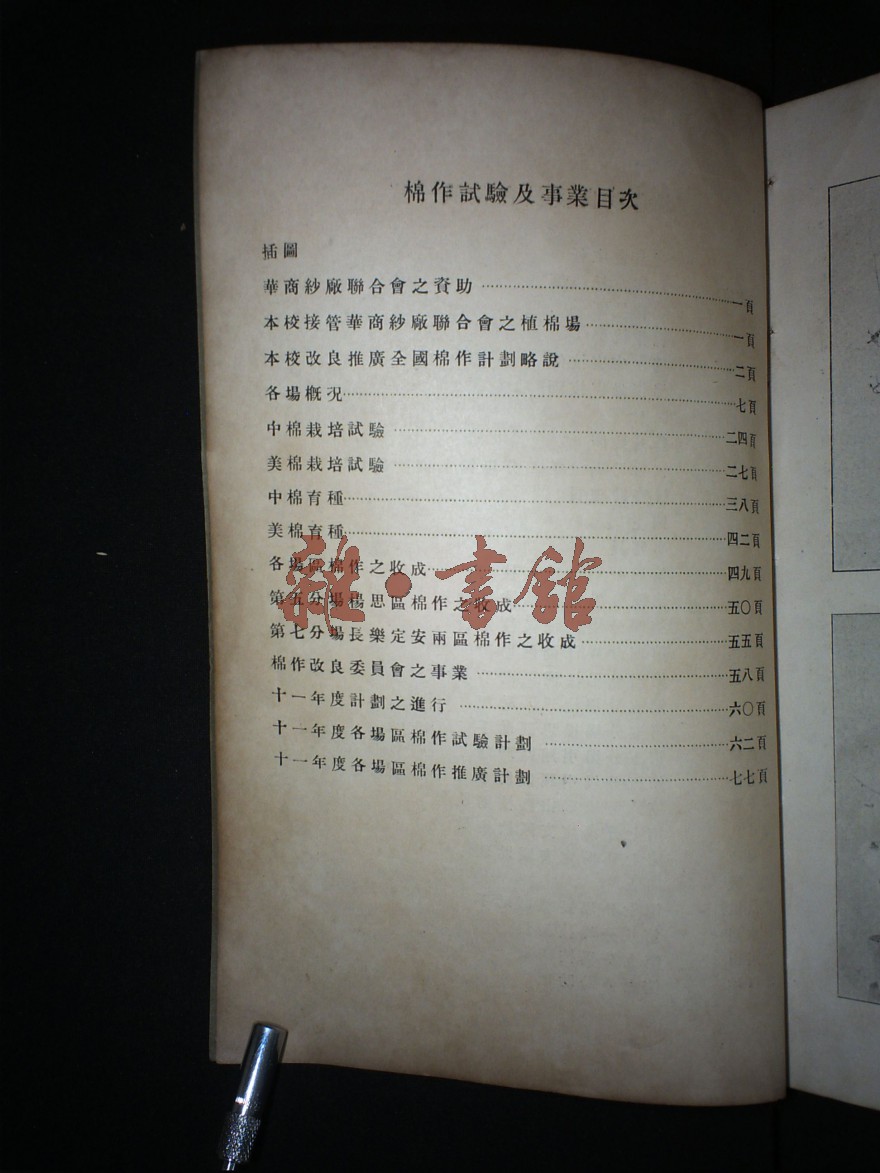 棉作試驗及事業目次
插圖
華商紗廠聯合會之資助…………一頁
本校接管華商紗廠聯合會之植棉場…………一頁
本校改良推廣全國棉作計劃略說…………二頁
各場概況…………七頁
中棉栽培試驗…………二四頁
美棉栽培試驗…………二七頁
中棉育種…………三八頁
美棉育種…………四二頁
各場區棉作之收成…………四九頁
第五分場楊思區棉作之收成…………五〇頁
第七分場長樂定安兩區棉作之收成…………五五頁
棉作改良委員會之事業…………五八頁
十一年度計劃之進行…………六〇頁
十一年度各場區棉作試驗計劃…………六二頁
十一年度各場區棉作推廣計劃…………七七頁
雜·書館